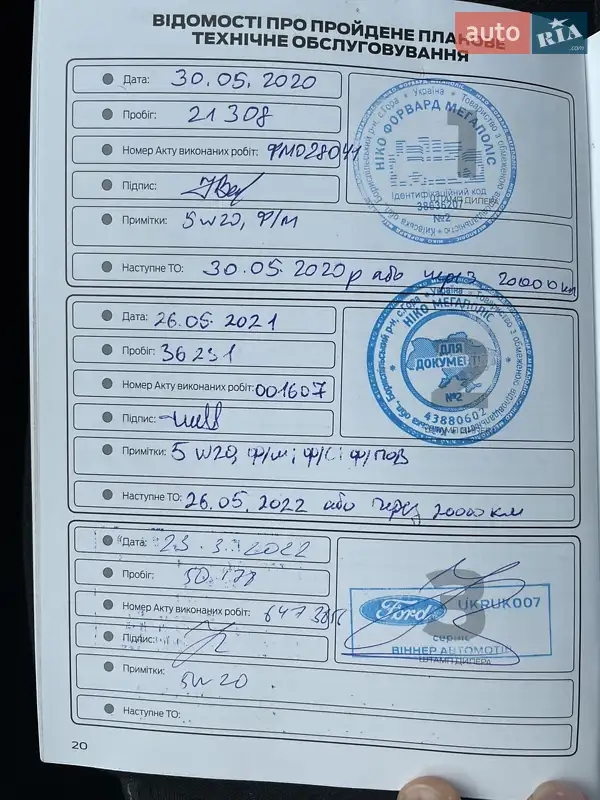 ВІДОМОСТІ ПРО ПРОЙДЕНЕ ПЛАНОВЕ
ТЕХНІЧНЕ ОБСЛУГОВУВАННЯ
auto RIA .com
Дата: 30.05.2020
Пробіг: 21308
Номер Акту виконаних робіт: ФМ028041
Підпис:
Примітки: 5w20, Ф/М
Наступне ТО: 30.05.2020р або через 20000км
1
Україна * Товариство з обмеженою відповідальністю * Київська обл., Бориспільський р-н, с.Гора
НІКО ФОРВАРД МЕГАПОЛІС
Ідентифікаційний код
38636207
ШТАМП ДИЛЕРА
№2
Дата: 26.05.2021
Пробіг: 36231
Номер Акту виконаних робіт: 001607
Підпис:
Примітки: 5w20, ф/м; ф/с; ф/пов
Наступне ТО: 26.05.2022 або через 20000км
2
Україна * Товариство з обмеженою відповідальністю * Київська обл., Бориспільський р-н, с.Гора
НІКО МЕГАПОЛІС
ДЛЯ
ДОКУМЕНТІВ
№2
43880602
ШТАМП ДИЛЕРА
Дата: 2022
Пробіг:
Номер Акту виконаних робіт:
Підпис:
Примітки:
5w20
Наступне ТО:
3
Ford UKRUK007
сервіс
ВІННЕР АВТОМОТІВ
ШТАМП ДИЛЕРА
20